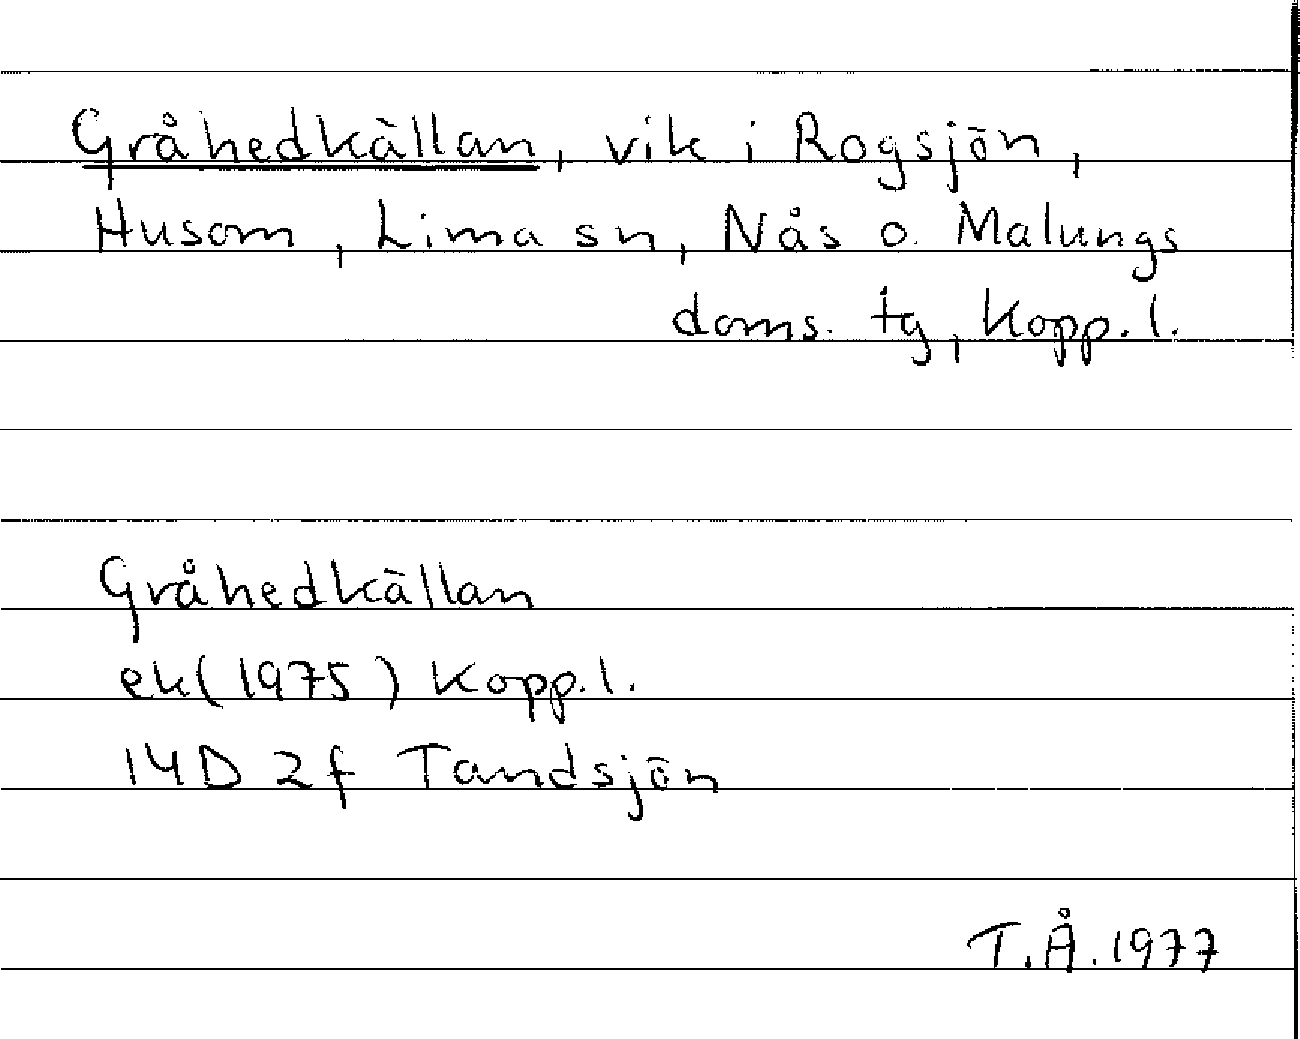 Gråhedkällan, vik i Rogsjön,
Husom, Lima sn, Nås o. Malungs
doms. tg, Kopp. l.
Gråhedkällan
ek (1975) Kopp. l.
14D 2f Tandsjön
T.Å. 1977